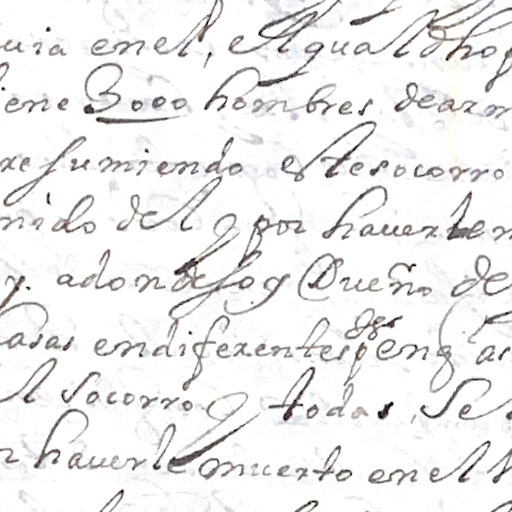 uia en el, el qual dho
iene 3000 hombres de arm
resumiendo este socorro
nido del q por hauerle
y. adonde soy Dueño de
casas en diferentes p en q
el socorro q todas, se
r hauerle muerto en el